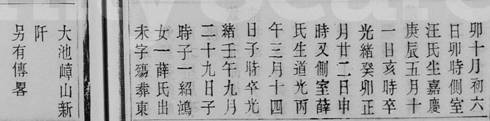 卯十月初六
日卯時側室
汪氏生嘉慶
庚辰五月十
一日亥時卒
光緒癸卯正
月廿二日申
時又側室薛
氏生道光丙
午三月十四
日子時卒光
緒壬午九月
二十九日子
時子一紹鴻
女一薛氏出
未字殤葬東
大池嶂山新
阡
另有傳畧